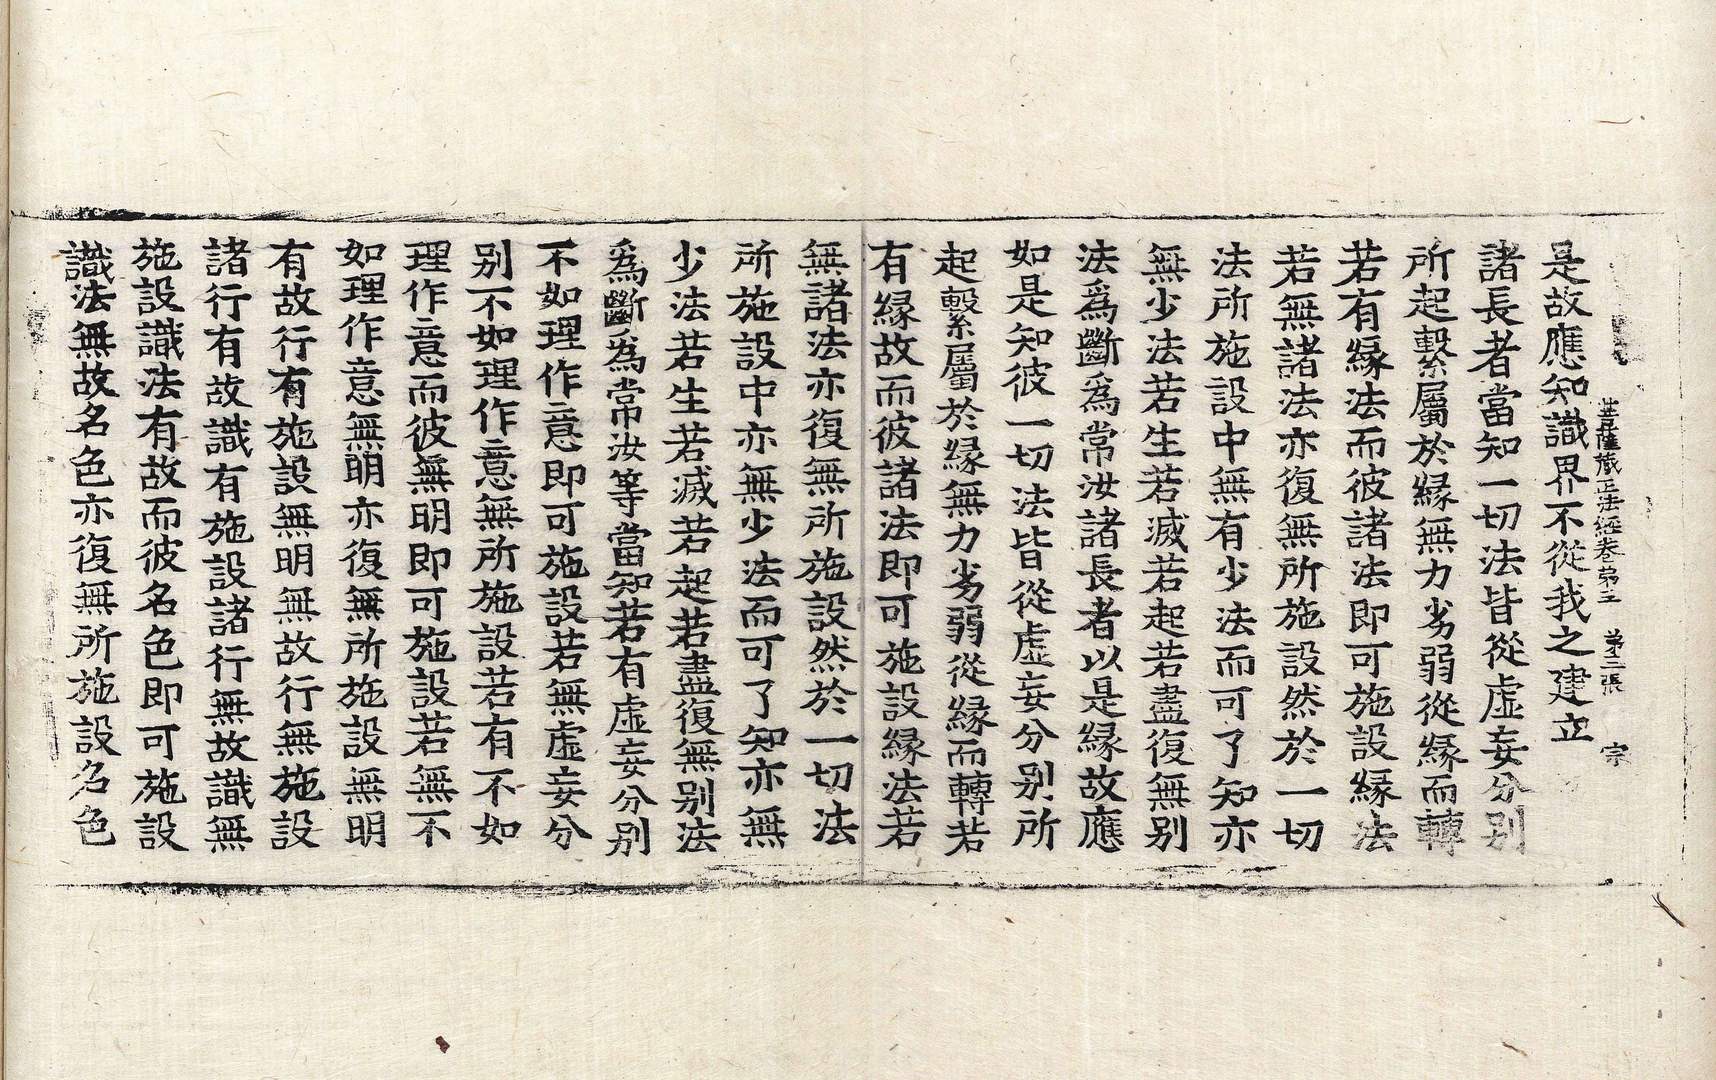 菩薩藏正法經卷第三 第二張 宗
是故應知識界不從我之建立
諸長者當知一切法皆從虛妄分别
所起繫屬於緣無力劣弱從緣而轉
若有緣法而彼諸法即可施設緣法
若無諸法亦復無所施設然於一切
法所施設中無有少法而可了知亦
無少法若生若滅若起若盡復無别
法爲斷爲常汝諸長者以是緣故應
如是知彼一切法皆從虛妄分别所
起繫屬於緣無力劣弱從緣而轉若
有緣故而彼諸法即可施設緣法若
無諸法亦復無所施設然於一切法
所施設中亦無少法而可了知亦無
少法若生若滅若起若盡復無别法
爲斷爲常汝等當知若有虛妄分别
不如理作意即可施設若無虛妄分
别不如理作意無所施設若有不如
理作意而彼無明即可施設若無不
如理作意無明亦復無所施設無明
有故行有施設無明無故行無施設
諸行有故識有施設諸行無故識無
施設識法有故而彼名色即可施設
識法無故名色亦復無所施設名色